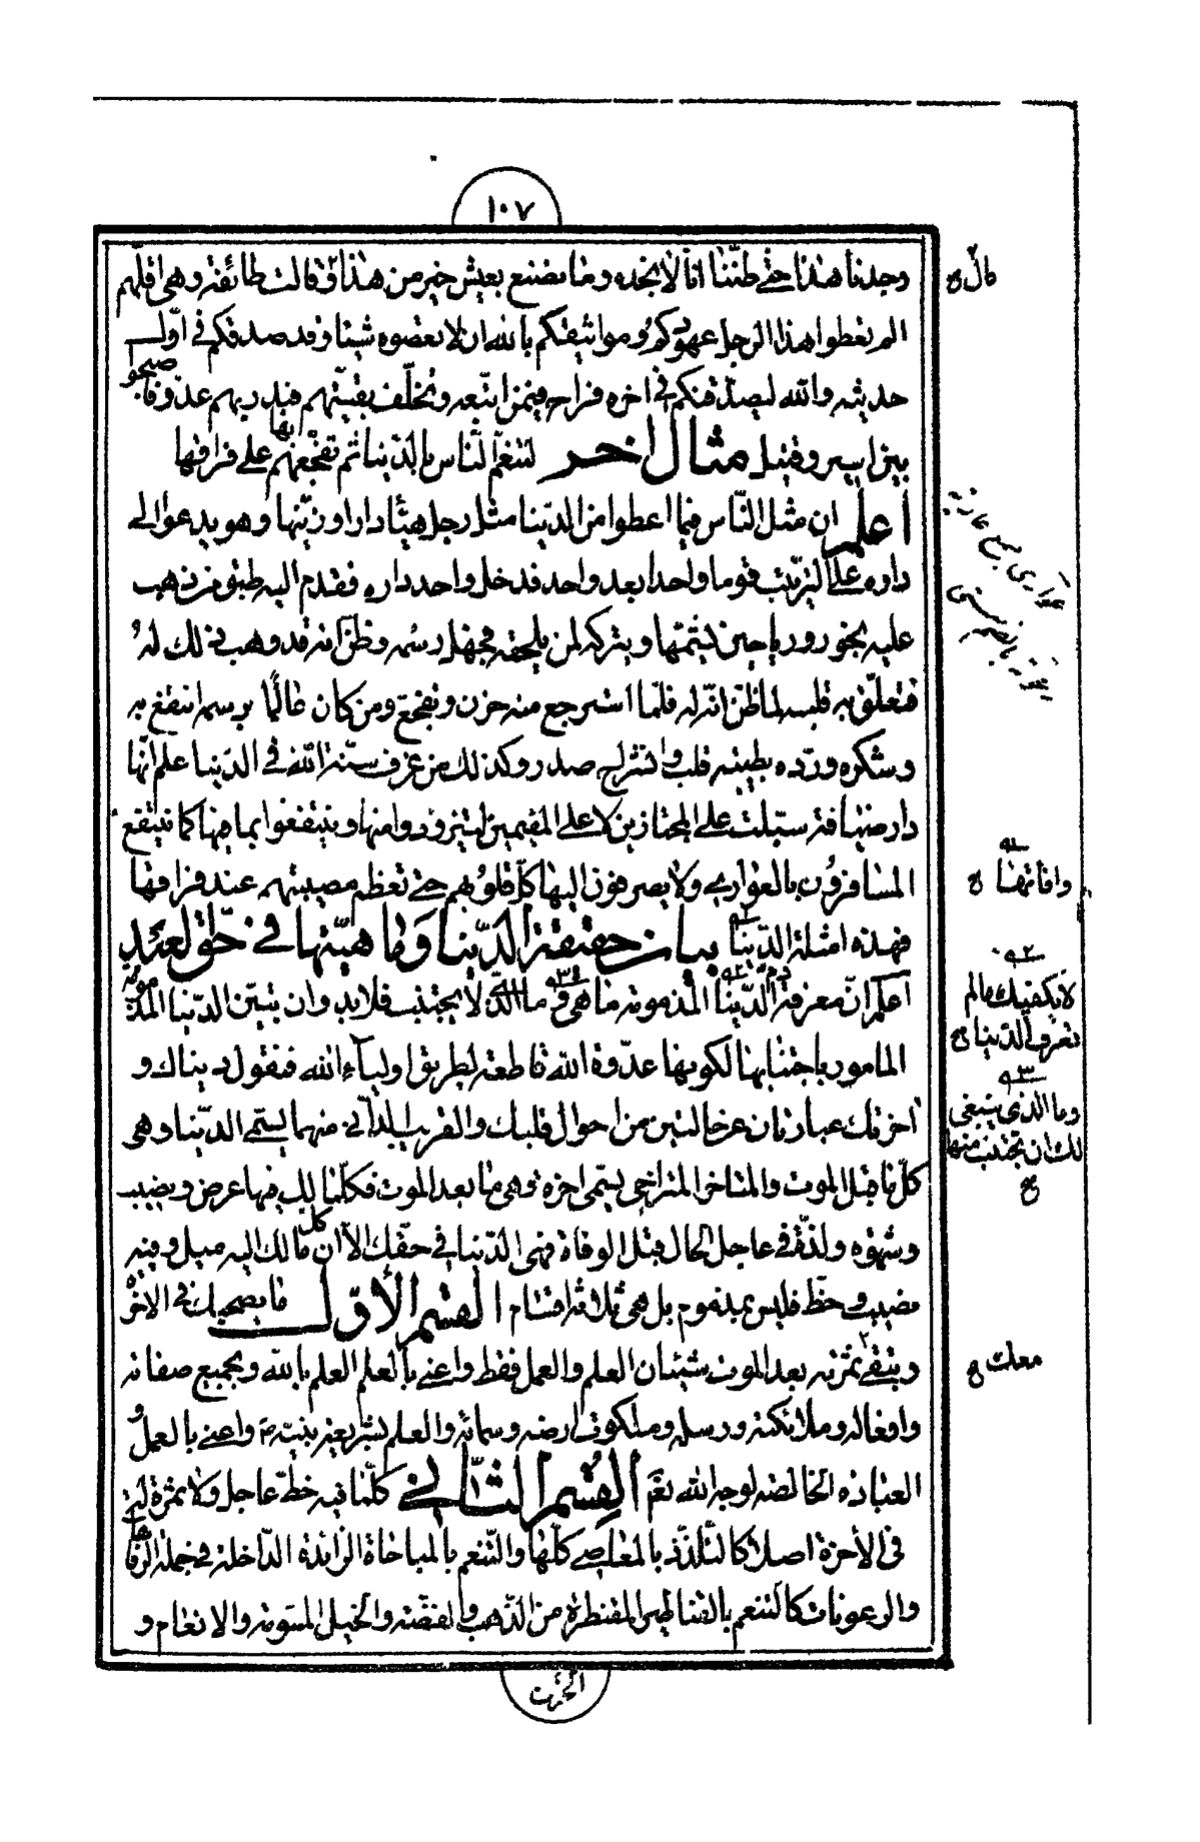 ١٠٧
وجدنا هذا حتى ظننا انا لا نجده وما نصنع بعيش خير من هذا وقالت طائفة وهي اقلهم
الم تعطوا هذا الرجل عهودكم ومواثيقكم بالله ان لا تعصوه شيئا وقد صدقكم في اول
حديثه والله ليصدقنكم في اخره فراح فيمن اتبعه وتخلف بقيتهم فبدر بهم عدو فاصبحوا
بين اسير وقتيل مثال اخر لتنعم الناس بالدنيا ثم تفجعهم بها على فراقها
اعلم ان مثل الناس فيما اعطوا من الدنيا مثل رجل هيئا دارا وزينها وهو يدعوا الى
داره على الترتيب قوما واحدا بعد واحد فدخل واحد داره فقدم اليه طبق من ذهب
عليه بخور ورياحين ليشمها ويتركه لمن يلحقه فجهل رسمه وظن انه قد وهب ذلك له
فتعلق به قلبه لما ظن انه له فلما استرجع منه حزن وتفجع ومن كان عالما برسم انتفع به
وشكره ورده بطيبة قلب وانشراح صدر وكذلك من عرف سنة الله في الدنيا علم انها
دار ضيافة سبلت على المجتازين لا على المقيمين ليتزودوا منها وينتفعوا بما فيها كما ينتفع
المسافرون بالعواري ولا يصرفون اليها كل قلوبهم حتى تعظم مصيبتهم عند فراقها
فهذه امثلة الدنيا بيان حقيقة الدنيا وماهيتها في حق العبد
اعلم ان معرفة ذم الدنيا المذمومة ما هي وما الذي لا يجتنب فلابد وان نبين الدنيا المذمومة
المامور باجتنابها لكونها عدوة الله قاطعة لطريق اولياء الله فنقول دنياك و
اخرتك عبارتان عن حالتين من احوال قلبك والقريب الداني منهما يسمى الدنيا وهي
كل ما قبل الموت والمتاخر المتراخي يسمى اخرة وهي ما بعد الموت فكلما لك فيها عرض ونصيب
وشهوة ولذة في عاجل الحال قبل الوفاة فهي الدنيا في حقك الا ان كل ما لك اليه ميل وفيه
نصيب وحظ فليس بمذموم بل هي ثلاثة اقسام القسم الاول ما يصحبك في الاخرة
ويبقى ثمرته بعد الموت شيئان العلم والعمل فقط واعني بالعلم العلم بالله وبجميع صفاته
وافعاله وملائكته ورسله وملكوت ارضه وسمائه والعلم بشريعة نبيه م واعني بالعمل
العبادة الخالصة لوجه الله نعم القسم الثاني كلما فيه حظ عاجل ولا ثمرة له
في الاخرة اصلا كالتلذذ بالمعاصي كلها والتنعم بالمباحاة الزائدة الداخلة في جملة الرفاهية
والرعونات كالتنعم بالقناطير المقنطرة من الذهب والفضة والخيل المسومة والانعام و
الحرث
قال ح
وافاتها ح
لا يكفيك ما لم
تعرف الدنيا ح
وما الذي ينبغي
لك ان تجتنب منها
ح
معك ح